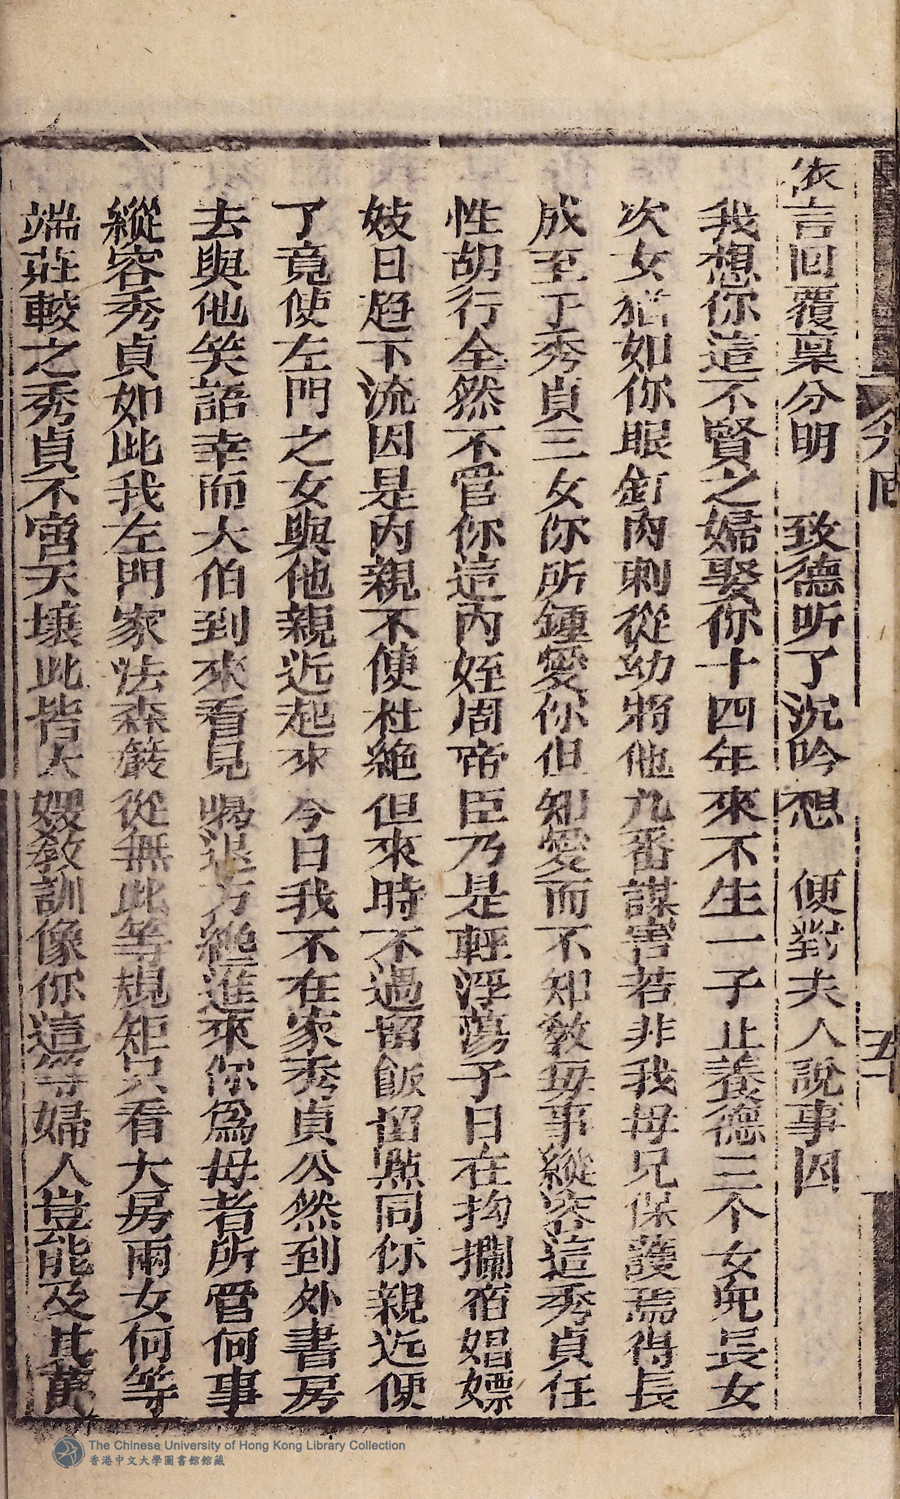 介回
五十
依言回覆稟分明　致德听了沉吟想　便對夫人說事因
我想你這不賢之婦娶你十四年來不生一子止養德三个女兒長女
次女猶如你眼釘肉刺從幼將他九番謀害若非我母兄保護焉得長
成至于秀貞三女你所鍾愛你但知愛而不知教毎事縱容這秀貞任
性胡行全然不管你這內姪周帝臣乃是輕浮蕩子日在拘攔宿娼嫖
妓日趋下流因是內親不便杜絶但來時不過留飯留㸃同你親近便
了竟使左門之女與他親近起來今日我不在家秀貞公然到外書房
去與他笑語幸而大伯到來看見喝退方纔進來你爲母者所管何事
縱容秀貞如此我左門家法森嚴從無此等規矩只看大房兩女何等
端莊較之秀貞不啻天壤此皆大嫂教訓像你這等婦人豈能及其萬
The Chinese University of Hong Kong Library Collection
香港中文大學圖書館館藏